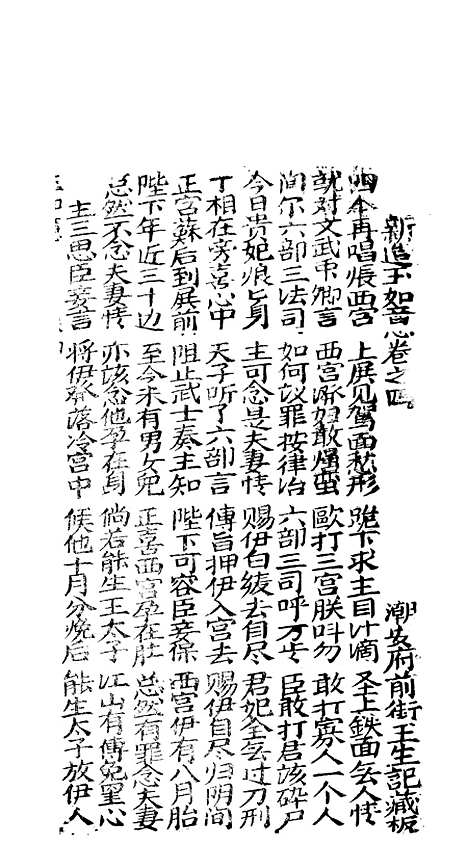 新造玉如意卷之四 潮安府前街王生記藏板
四本再唱張西宮 上展见駕面愁形 跪下求主目汁滴 圣上鉄面无人情
就对文武众卿言 西宫潑妇敢爛蛮 歐打三宫朕叫勿 敢打寡人一个人
问尔六部三法司 如何议罪按律治 六部三司呼万岁 臣敢打君该碎尸
今日贵妃痕上身 主可念是夫妻情 赐伊白绫去自尽 君妃全无过刀刑
丁相在旁喜心中 天子听了六部言 傳旨押伊入宫去 赐伊自尽归阴间
正宫蘇后到展前 阻止武士奏主知 陛下可容臣妾保 西宫伊有八月胎
陛下年近三十边 至今未有男女児 正喜西宫孕在肚 总然有罪念夫妻
总然不念夫妻情 亦该念他孕在身 倘若能生王太子 江山有傳免挂心
主三思臣妾言 将伊發落冷宫中 候他十月分娩后 能生太子放伊人